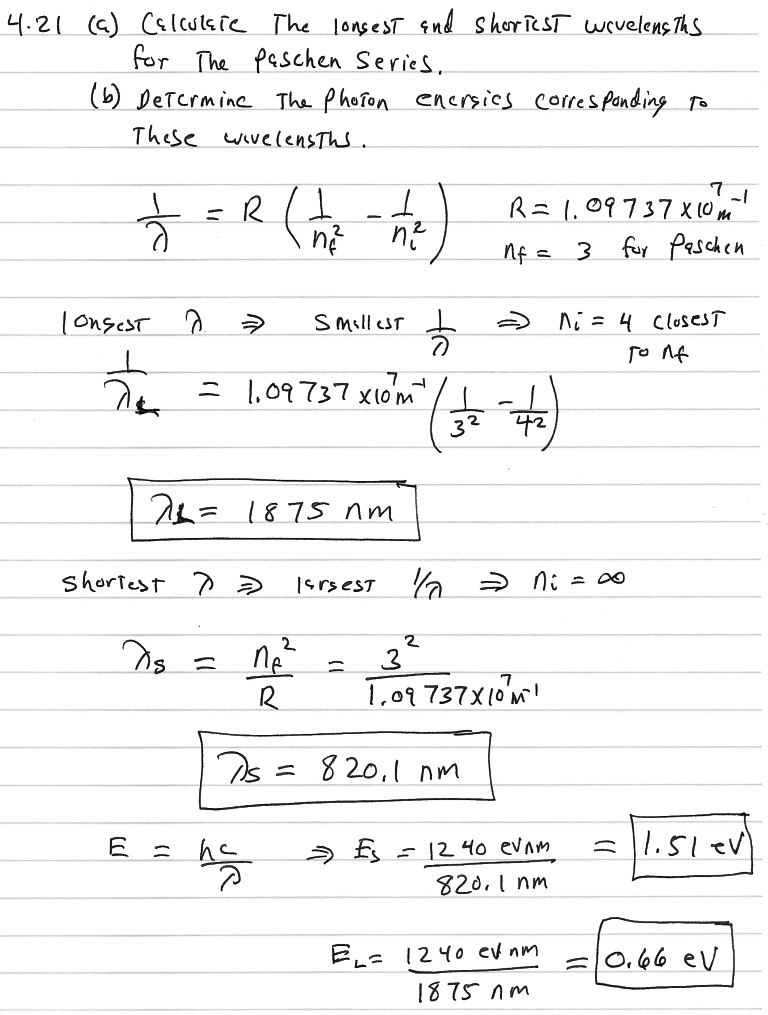 4.21 (a) Calculate The longest and shortest wavelengths
for The Paschen Series.
(b) Determine The Photon energies corresponding to
These wavelengths.
1/λ = R (1/n_f² - 1/n_i²) R = 1.09737 x 10⁷ m⁻¹
n_f = 3 for Paschen
longest λ ⇒ smallest 1/λ ⇒ n_i = 4 closest
to n_f
1/λ_L = 1.09737 x10⁷ m⁻¹ (1/3² - 1/4²)
λ_L = 1875 nm
Shortest λ ⇒ largest 1/λ ⇒ n_i = ∞
λ_s = n_f²/R = 3²/1.09737X10⁷ m⁻¹
λ_s = 820.1 nm
E = hc/λ ⇒ E_s = 1240 eV nm/820.1 nm = 1.51 eV
E_L = 1240 eV nm/1875 nm = 0.66 eV